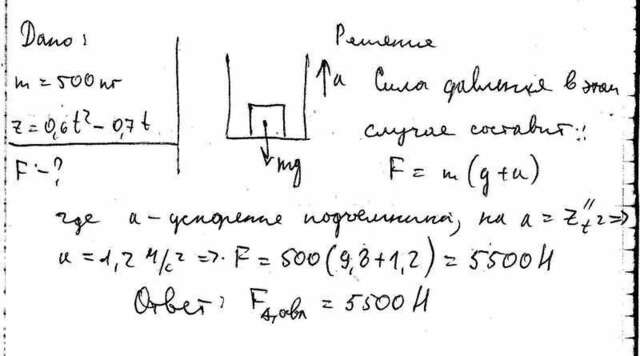 Дано:
m = 500 кг
z = 0,6t² - 0,7t
F - ?
Решение
a
mg
Сила давления в этом
случае составит:
F = m(g + a)
где a - ускорение подъемника, на a = z''t² =>
a = 1,2 м/с² => F = 500(9,8 + 1,2) = 5500 Н
Ответ: Fдавл = 5500 Н